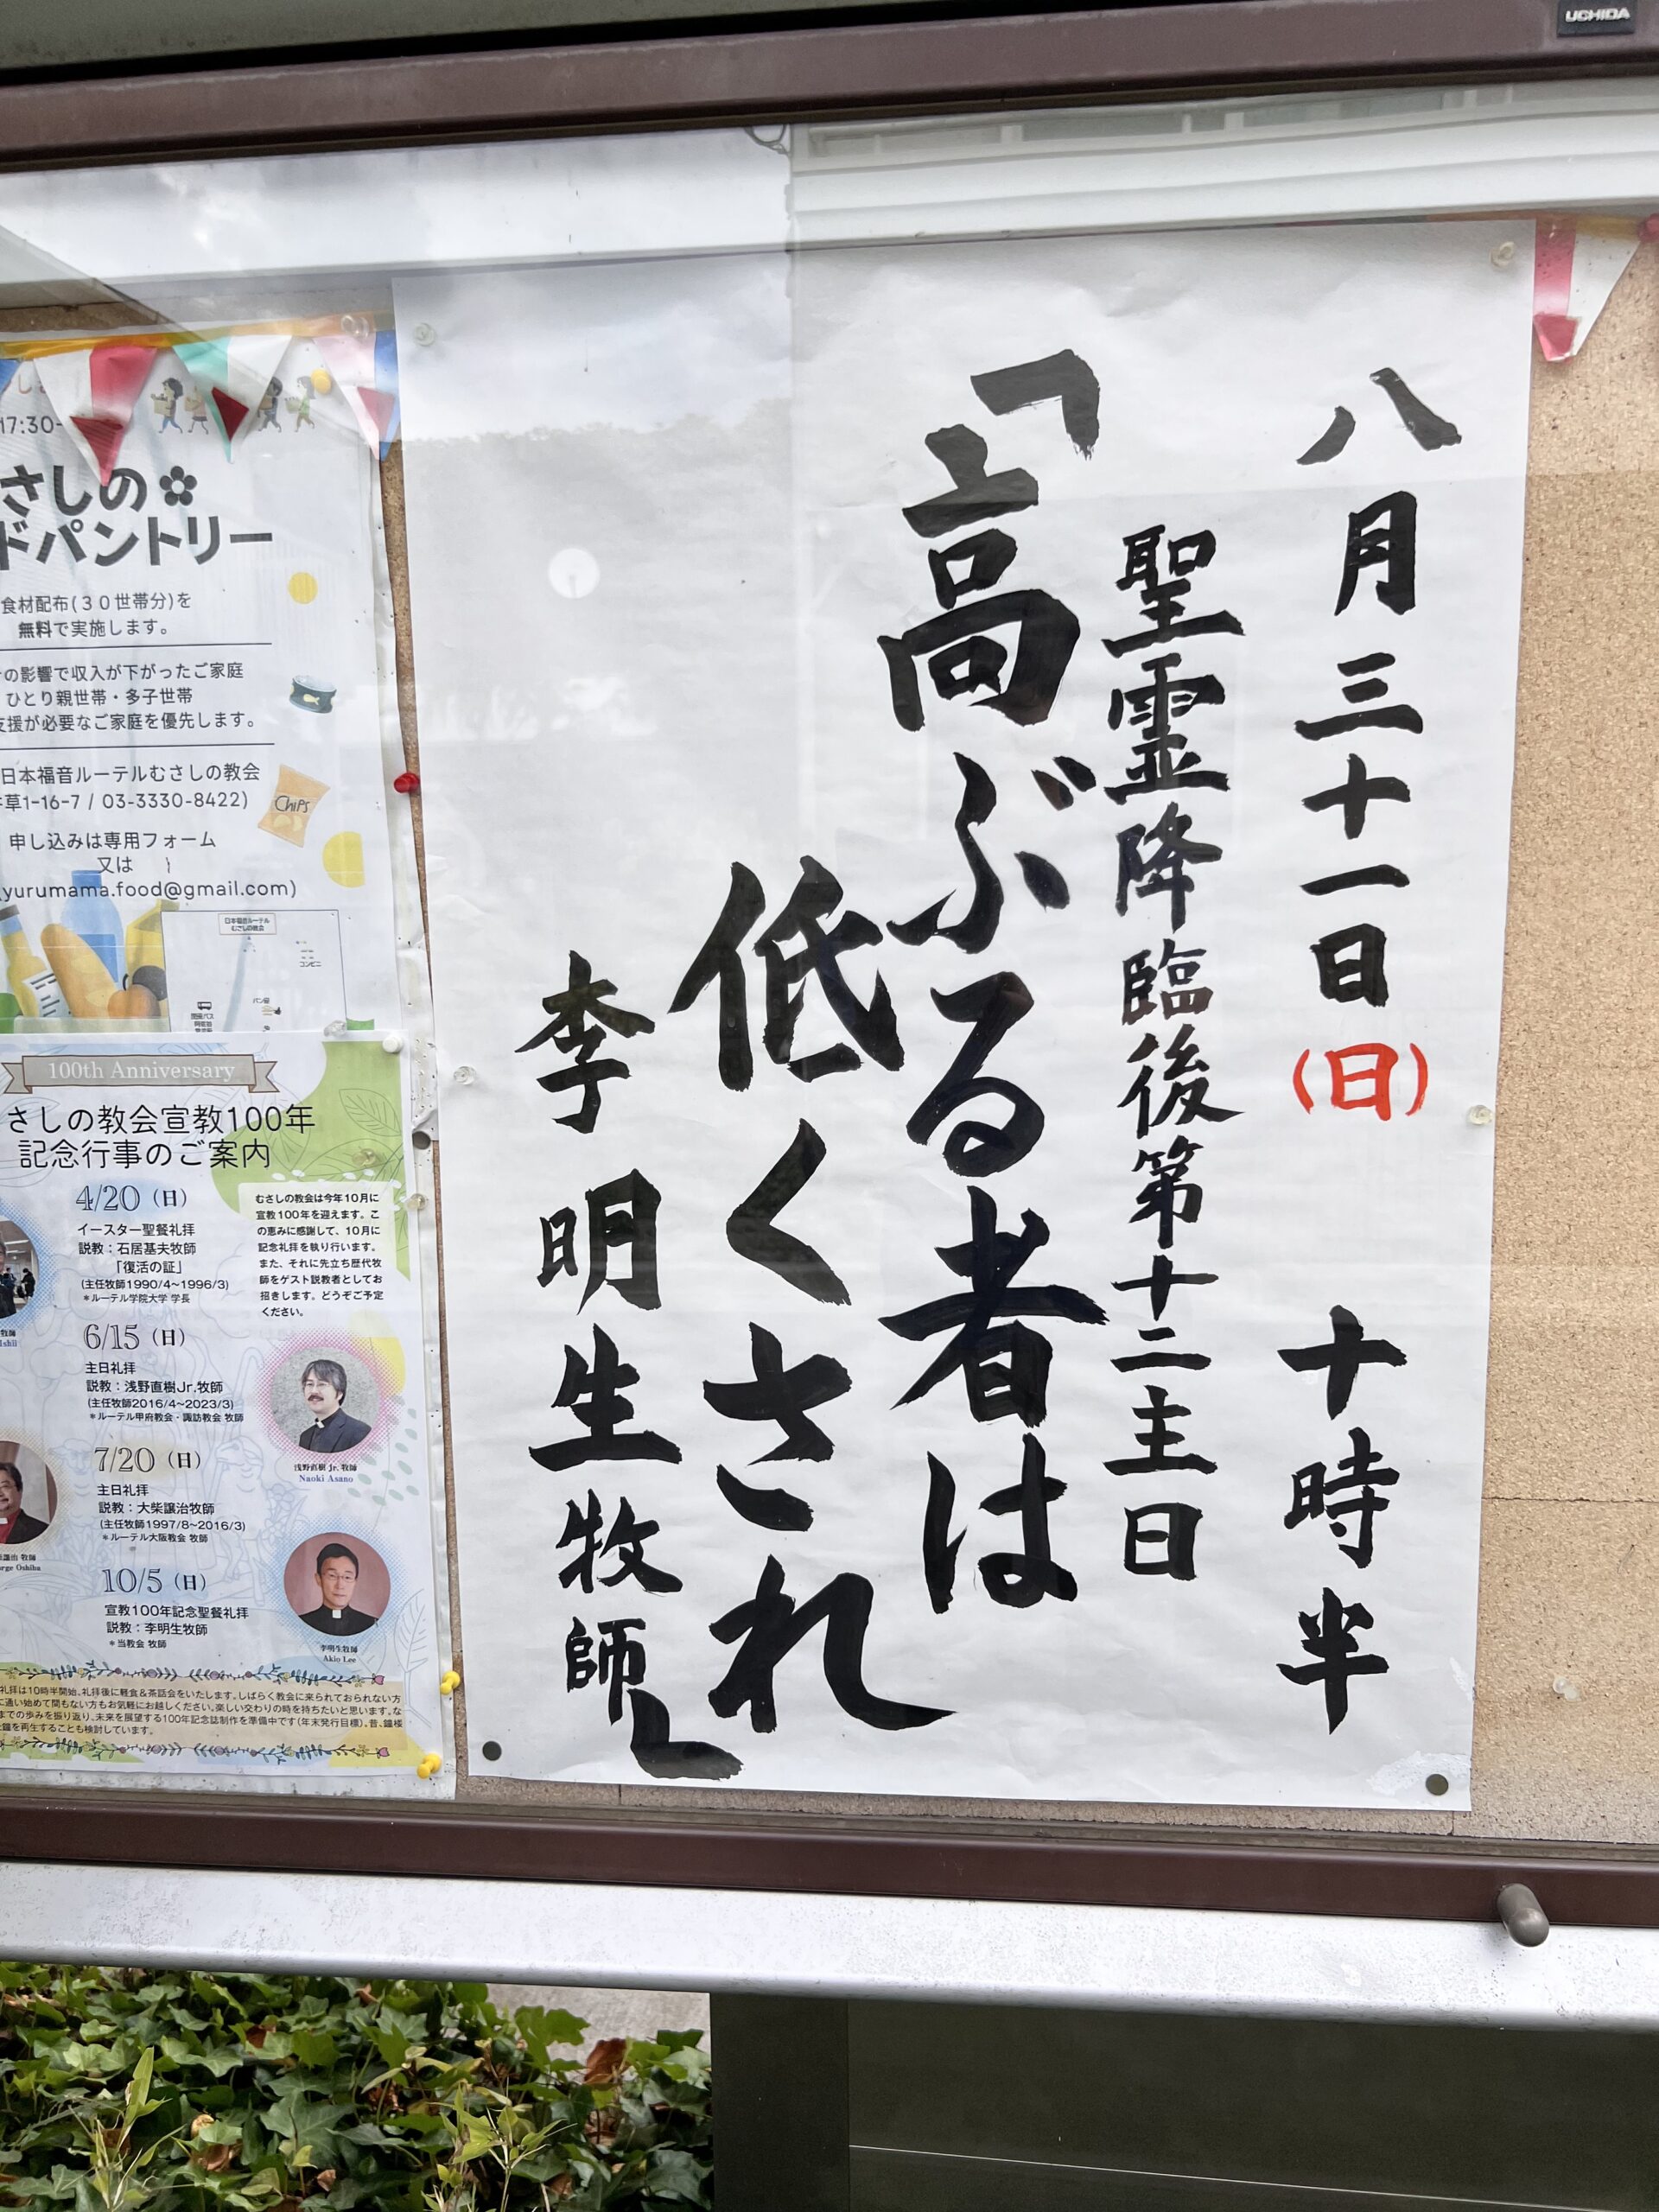 UCHIDA
八月三十一日(日) 十時半
聖霊降臨後第十二主日
「高ぶる者は
低くされ
李明生牧師」
17:30-
さしの
ドパントリー
食材配布(30世帯分)を
無料で実施します。
の影響で収入が下がったご家庭
ひとり親世帯・多子世帯
支援が必要なご家庭を優先します。
日本福音ルーテルむさしの教会
草1-16-7 / 03-3330-8422)
Chips
申し込みは専用フォーム
又は
yurumama.food@gmail.com)
日本福音ルーテル
むさしの教会
コンビニ
パン屋
100th Anniversary
さしの教会宣教100年
記念行事のご案内
4/20(日)
イースター聖餐礼拝
説教:石居基夫牧師
「復活の証」
(主任牧師1990/4~1996/3)
*ルーテル学院大学 学長
むさしの教会は今年10月に
宣教100年を迎えます。こ
の恵みに感謝して、10月に
記念礼拝を執り行います。
また、それに先立ち歴代牧
師をゲスト説教者としてお
招きします。どうぞご予定
ください。
牧師
Ishii
6/15(日)
主日礼拝
説教:浅野直樹Jr.牧師
(主任牧師2016/4~2023/3)
*ルーテル甲府教会・諏訪教会 牧師
浅野直樹 Jr. 牧師
Naoki Asano
7/20(日)
主日礼拝
説教:大柴譲治牧師
(主任牧師1997/8~2016/3)
*ルーテル大阪教会 牧師
譲治 牧師
rge Oshiba
10/5(日)
宣教100年記念聖餐礼拝
説教:李明生牧師
*当教会 牧師
李明生牧師
Akio Lee
礼拝は10時半開始。礼拝後に軽食&茶話会をいたします。しばらく教会に来られておられない方
に通い始めて間もない方もお気軽にお越しください。楽しい交わりの時を持ちたいと思います。な
までの歩みを振り返り、未来を展望する100年記念誌制作を準備中です(年末発行目標)。昔、鐘楼
鐘を再生することも検討しています。